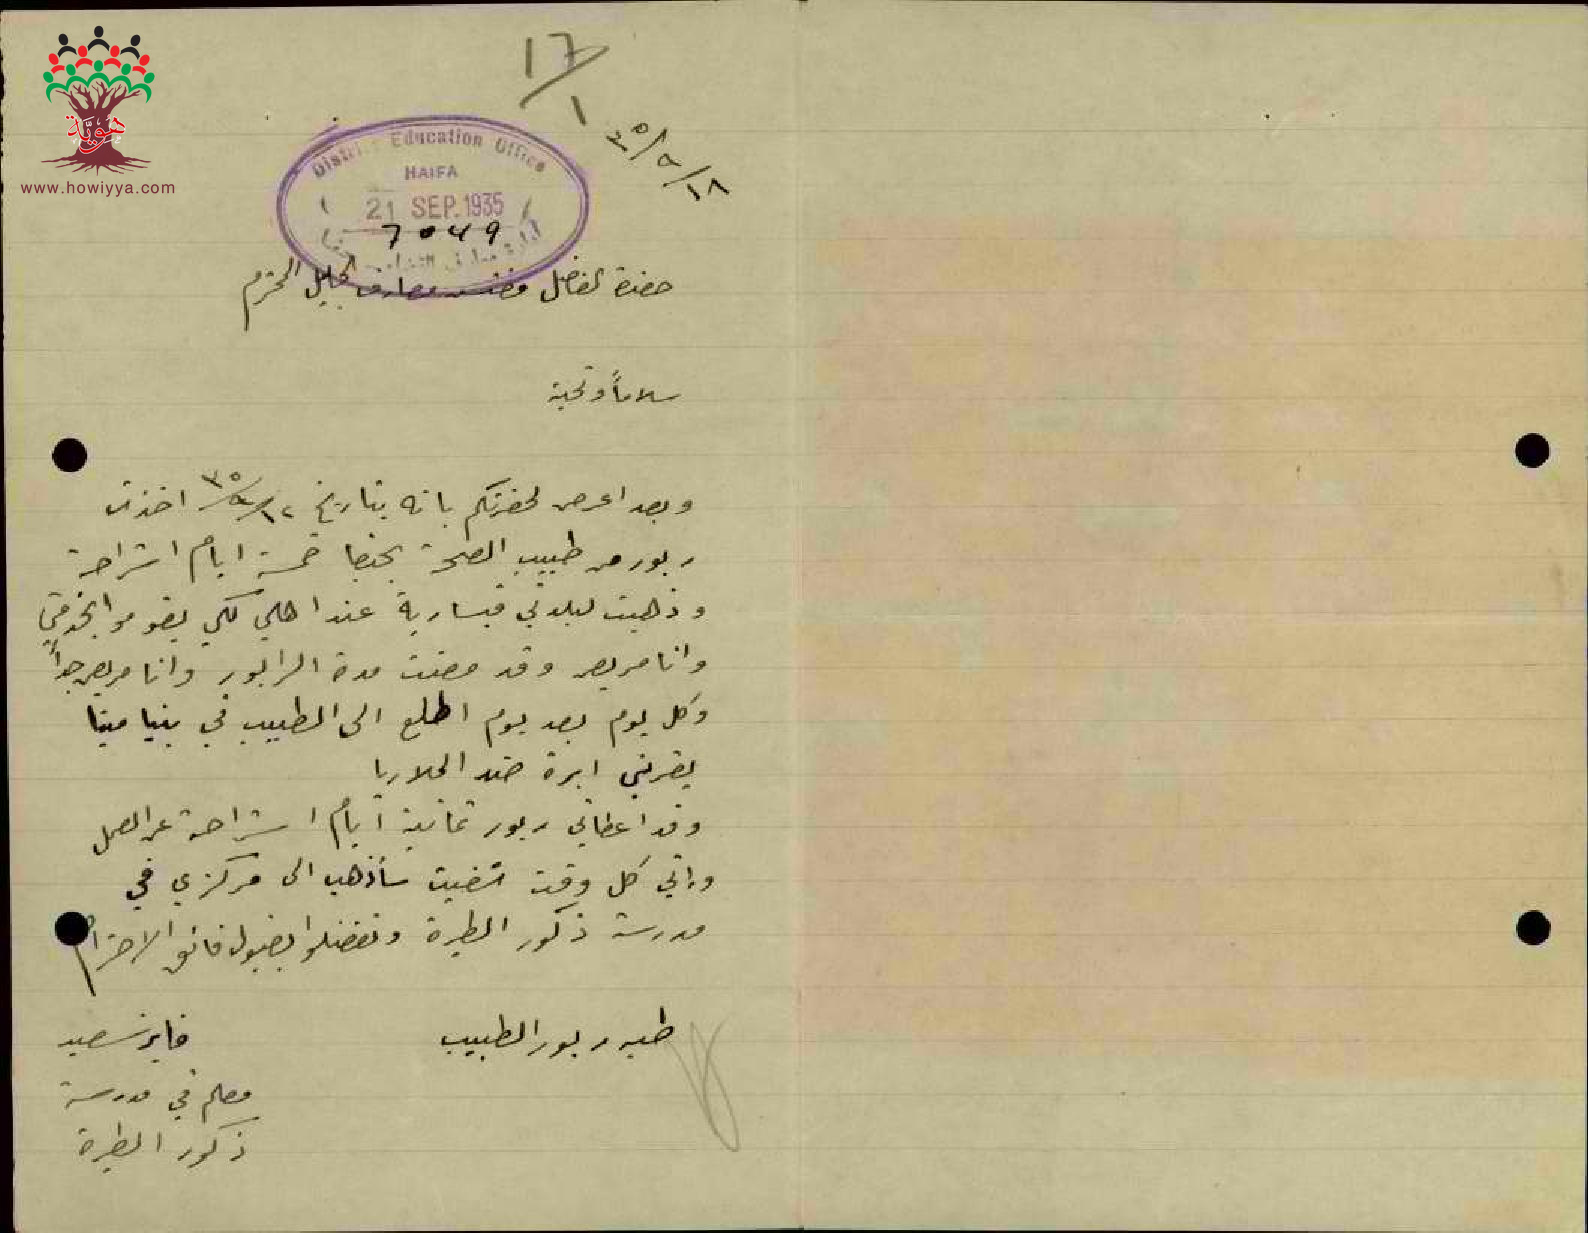 17/1
٣٥/٩/١٨
هويّة
www.howiyya.com
District Education Office
HAIFA
21 SEP. 1935
7049
حضرة الفاضل مفتش معارف الجليل المحترم
سلاماً وتحية
وبعد اعرض لحضرتكم بانه بتاريخ ١٢/٩/٣٥ اخذت
ربور من طبيب الصحة بحيفا خمسة ايام استراحة
وذهبت لبلدتي قيسارية عند اهلي لكي يقوموا بخدمتي
وانا مريض وقد مضت مدة الرابور وانا مريض جداً
وكل يوم بعد يوم اطلع الى الطبيب في بنيامينا
يضربني ابرة ضد الملاريا
وقد اعطاني ربور ثمانية أيام استراحة عن العمل
واني كل وقت شفيت سأذهب الى مركزي في
مدرسة ذكور الطيرة وتفضلوا بقبول فائق الاحترام
طيه ربور الطبيب
فايز سعيد
معلم في مدرسة
ذكور الطيرة